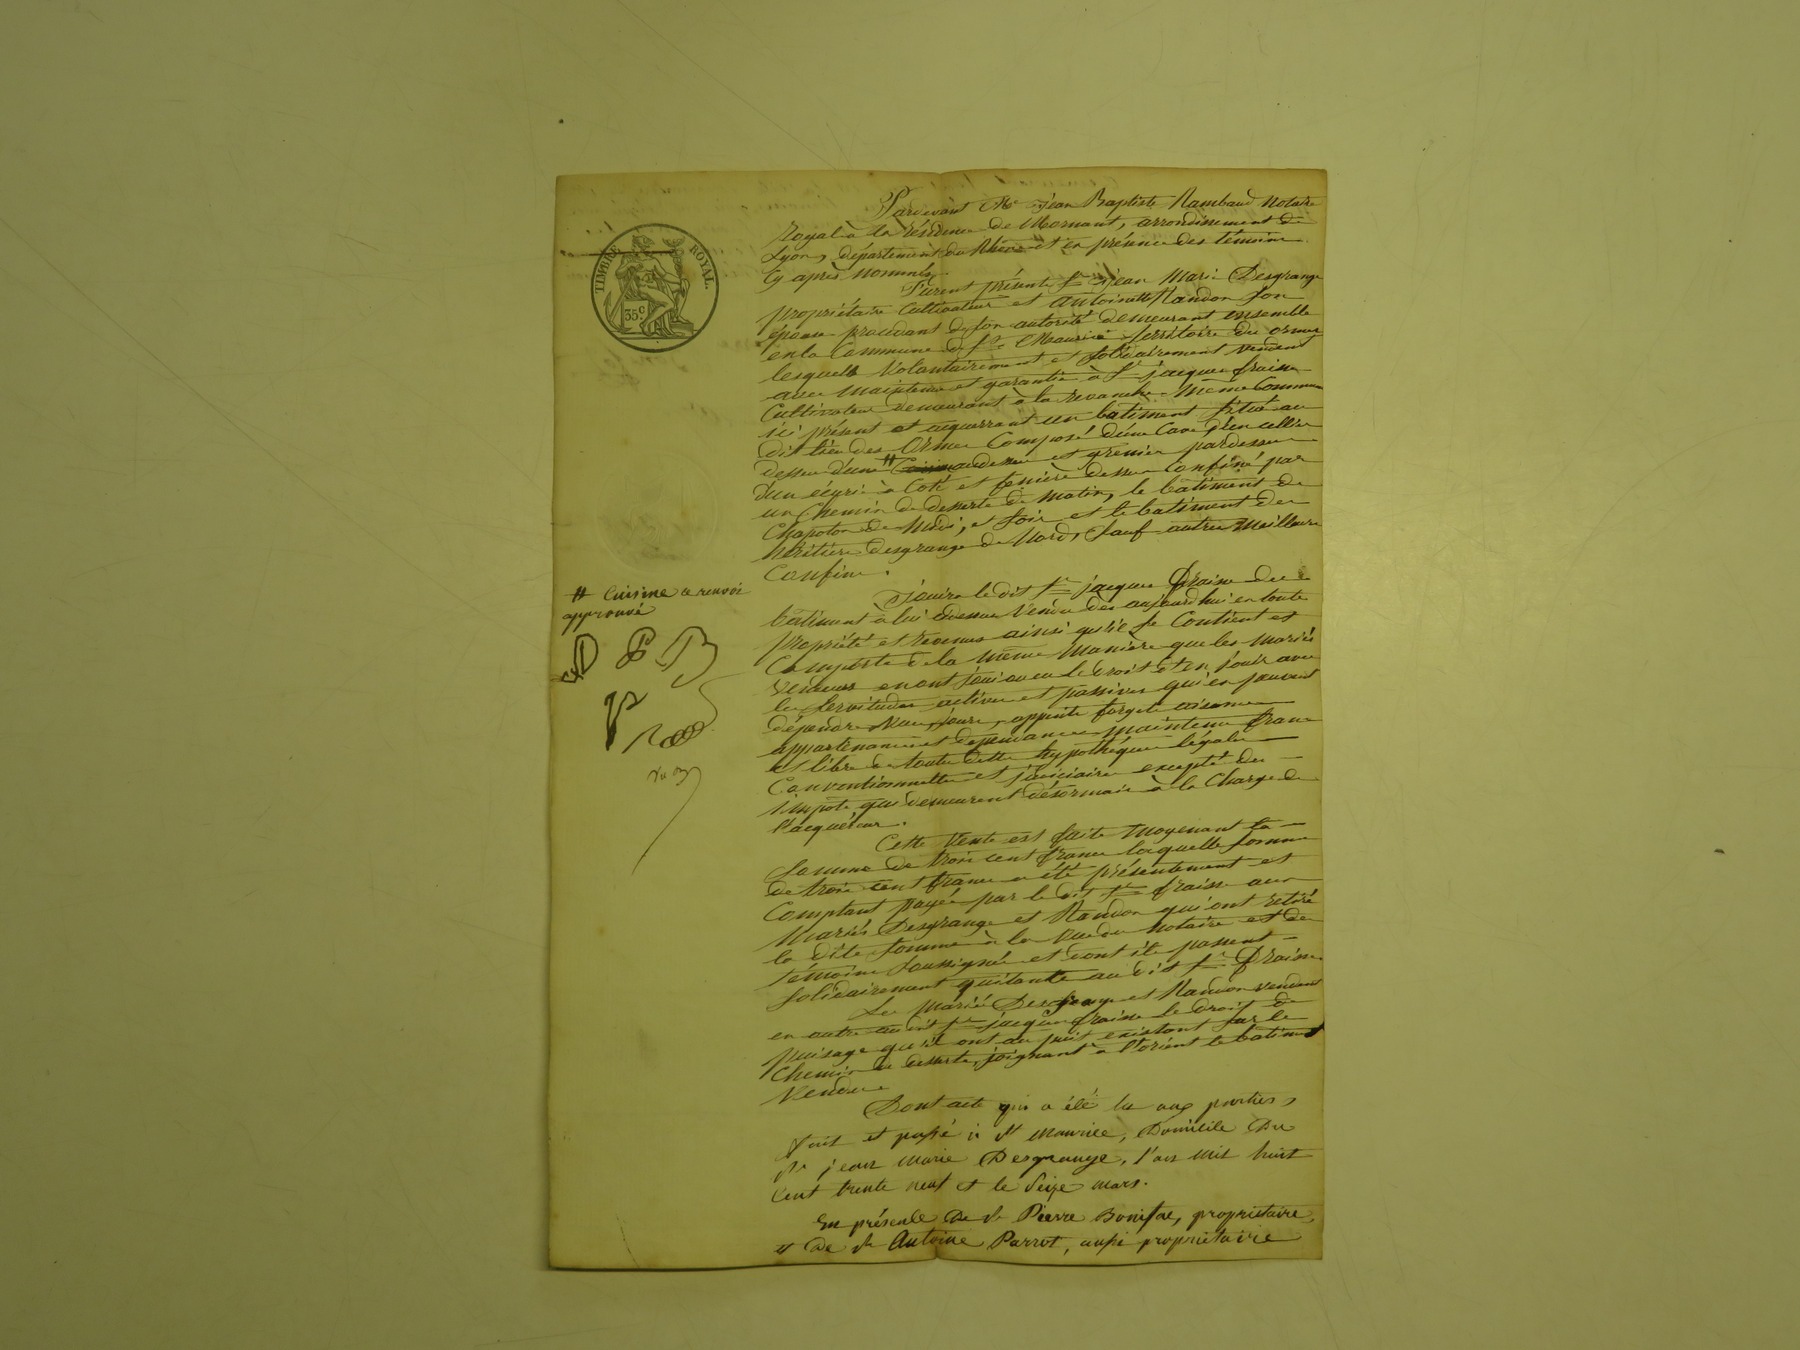 TIMBRE ROYAL.
35 c
Pardevant Me Jean Baptiste Rambaud Notaire
Royal à la résidence de Mornant, arrondissement de
Lyon, département du Rhône et en présence des témoins
Cy après Nommés.
Furent présents Sr Jean Marie Desgrange
propriétaire Cultivateur et Antoinette Randon son
épouse procédant de son autorité demeurant ensemble
en la Commune de St Maurice territoire des ormes
lesquels Volontairement et solidairement vendent
avec maintenue et garantie à Sr jacques fraisse
Cultivateur demeurant à la revanche même Commune
ici présent et acquerrant un batiment situé au
dit lieu des Ormes Composé d'une Cave et un cellier
dessus d'une # au dessus et grenier pardessus
d'un écurie à Coté et feniere dessus Confiné par
un Chemin de desserte de matin, le bâtiment de
Chapoton de Midi, et soir et le batiment des
héritiers desgrange de Nord, sauf autres meilleurs
Confins.
# Cuisine ce renvoi
approuvé
D P B
Jouira le dit Sr jacques fraisse du
bâtiment à lui dessus Vendu des aujourd'hui en toute
propriété et revenus ainsi qu'il se Contient et
Comporte de la même manière que les mariés
vendeurs en ont joui ou eu le droit d'en jouir avec
les servitudes actives et passives qui en peuvent
dépendre Vues, jours, appuits forgets aisances
appartenances et dependances maintenu franc
et libre de toute dette hypothéque légale
Conventionnelle et judiciaire excepté des
impots qui demeurent désormais à la Charge de
l'acquéreur.
Cette Vente est faite moyenant la
somme de trois cent francs laquelle somme
de trois cent francs a été présentement et
Comptant payée par le dit Sr fraisse aux
Mariés Desgrange et Randon qui ont retiré
la dite somme à la Vue du Notaire et des
témoins soussignés et dont ils passent
solidairement quitance au dit Sr fraisse
Les mariés Desgrange et Randon vendent
en outre au dit Sr jacques fraisse le droit de
puisage qu'ils ont au puit existant sur le
Chemin de desserte, joignant à l'orient le batiment
Vendu.
Dont acte qui a été lu aux parties,
fait et passé à St Maurice, Domicile Du
Sr jean Marie Desgrange, l'an Mil huit
Cent trente neuf et le Seize mars.
En présence De Sr Pierre Bonifac, proprietaire,
et De Sr Antoine Parrot, aussi proprietaire